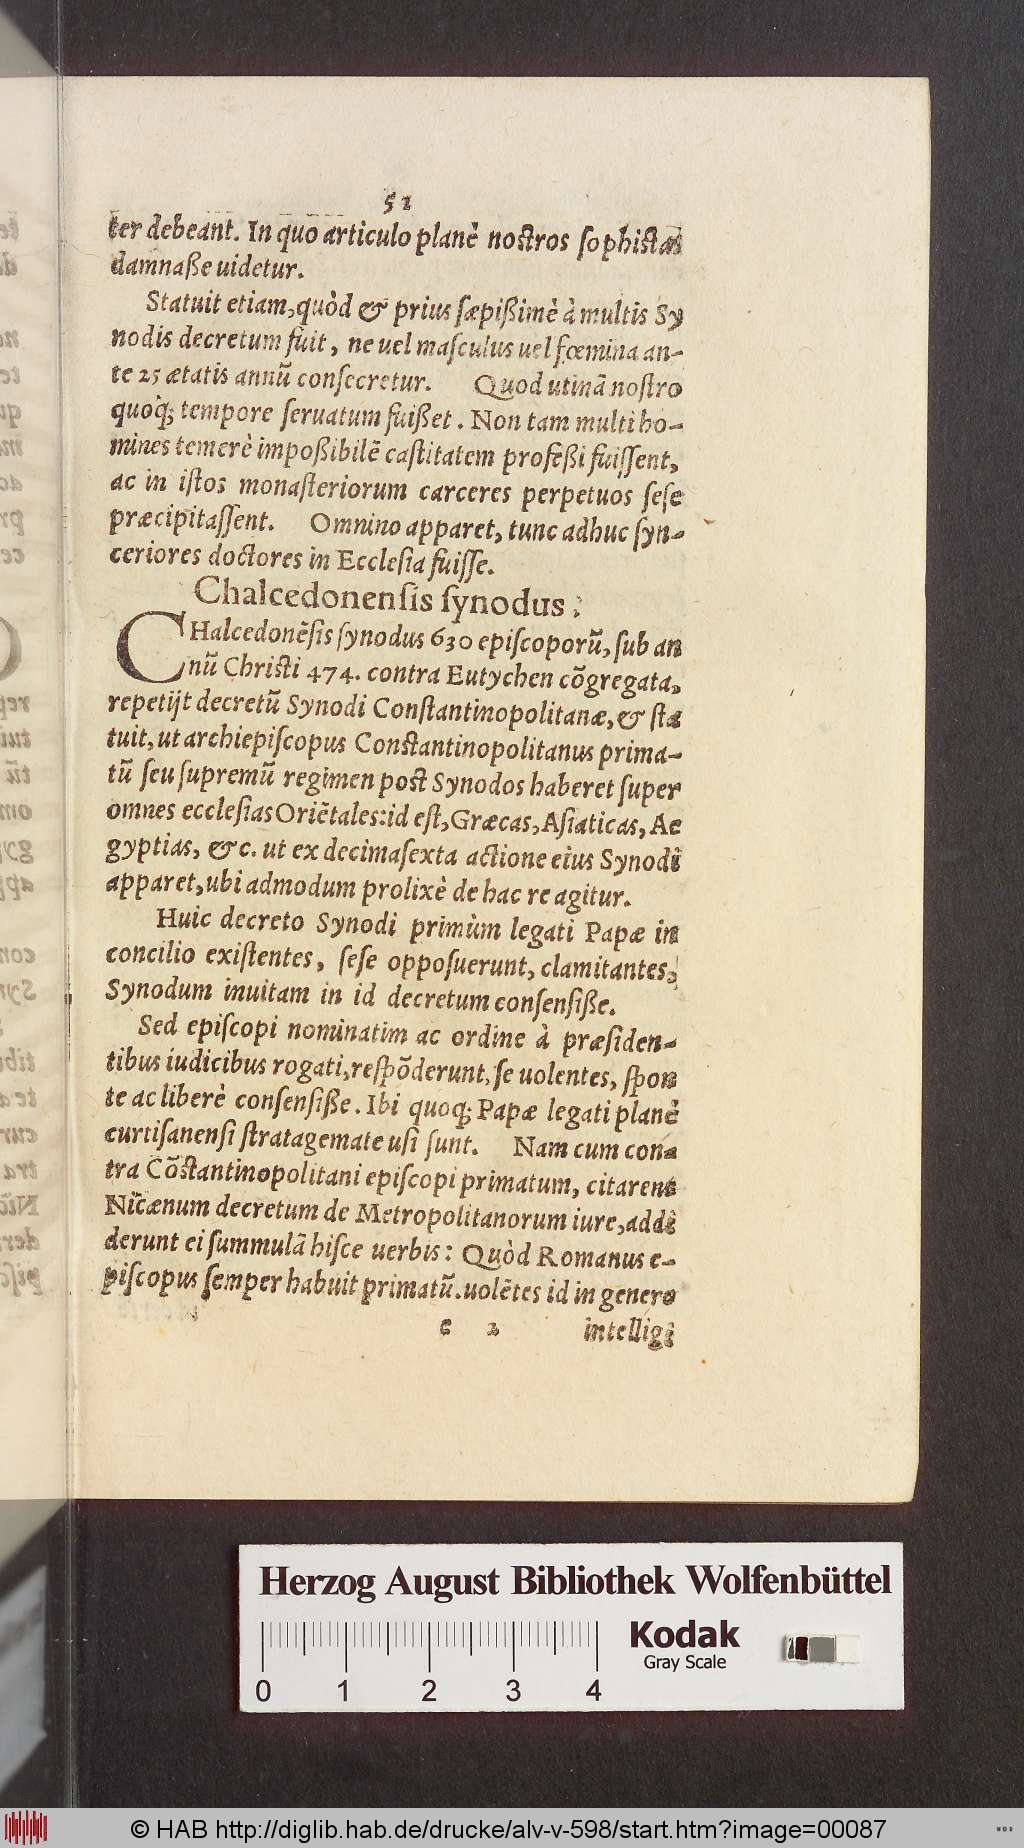 51
ter debeant. In quo articulo planè nostros sophistas
damnaße uidetur.
Statuit etiam, quòd & prius sæpißimè à multis Sy
nodis decretum fuit, ne uel masculus uel fœmina an-
te 25 ætatis annū consecretur. Quod utinā nostro
quoq; tempore seruatum fuißet. Non tam multi ho-
mines temerè impoßibilē castitatem profeßi fuissent,
ac in istos monasteriorum carceres perpetuos sese
præcipitassent. Omnino apparet, tunc adhuc syn-
ceriores doctores in Ecclesia fuisse.
Chalcedonensis synodus.
CHalcedonēsis synodus 630 episcoporū, sub an
nū Christi 474. contra Eutychen cōgregata,
repetijt decretū Synodi Constantinopolitanæ, & sta
tuit, ut archiepiscopus Constantinopolitanus prima-
tū seu supremū regimen post Synodos haberet super
omnes ecclesias Oriētales: id est, Græcas, Asiaticas, Ae
gyptias, &c. ut ex decimasexta actione eius Synodi
apparet, ubi admodum prolixè de hac re agitur.
Huic decreto Synodi primùm legati Papæ in
concilio existentes, sese opposuerunt, clamitantes,
Synodum inuitam in id decretum consensiße.
Sed episcopi nominatim ac ordine à præsiden-
tibus iudicibus rogati, respōderunt, se uolentes, spon
te ac liberè consensiße. Ibi quoq; Papæ legati planè
curtisanensi stratagemate usi sunt. Nam cum con-
tra Cōstantinopolitani episcopi primatum, citarent
Nicænum decretum de Metropolitanorum iure, addi
derunt ei summulā hisce uerbis: Quòd Romanus e-
piscopus semper habuit primatū. uolētes id in genere
e 2 intelligi
Herzog August Bibliothek Wolfenbüttel
Kodak
Gray Scale
0 1 2 3 4
© HAB http://diglib.hab.de/drucke/alv-v-598/start.htm?image=00087